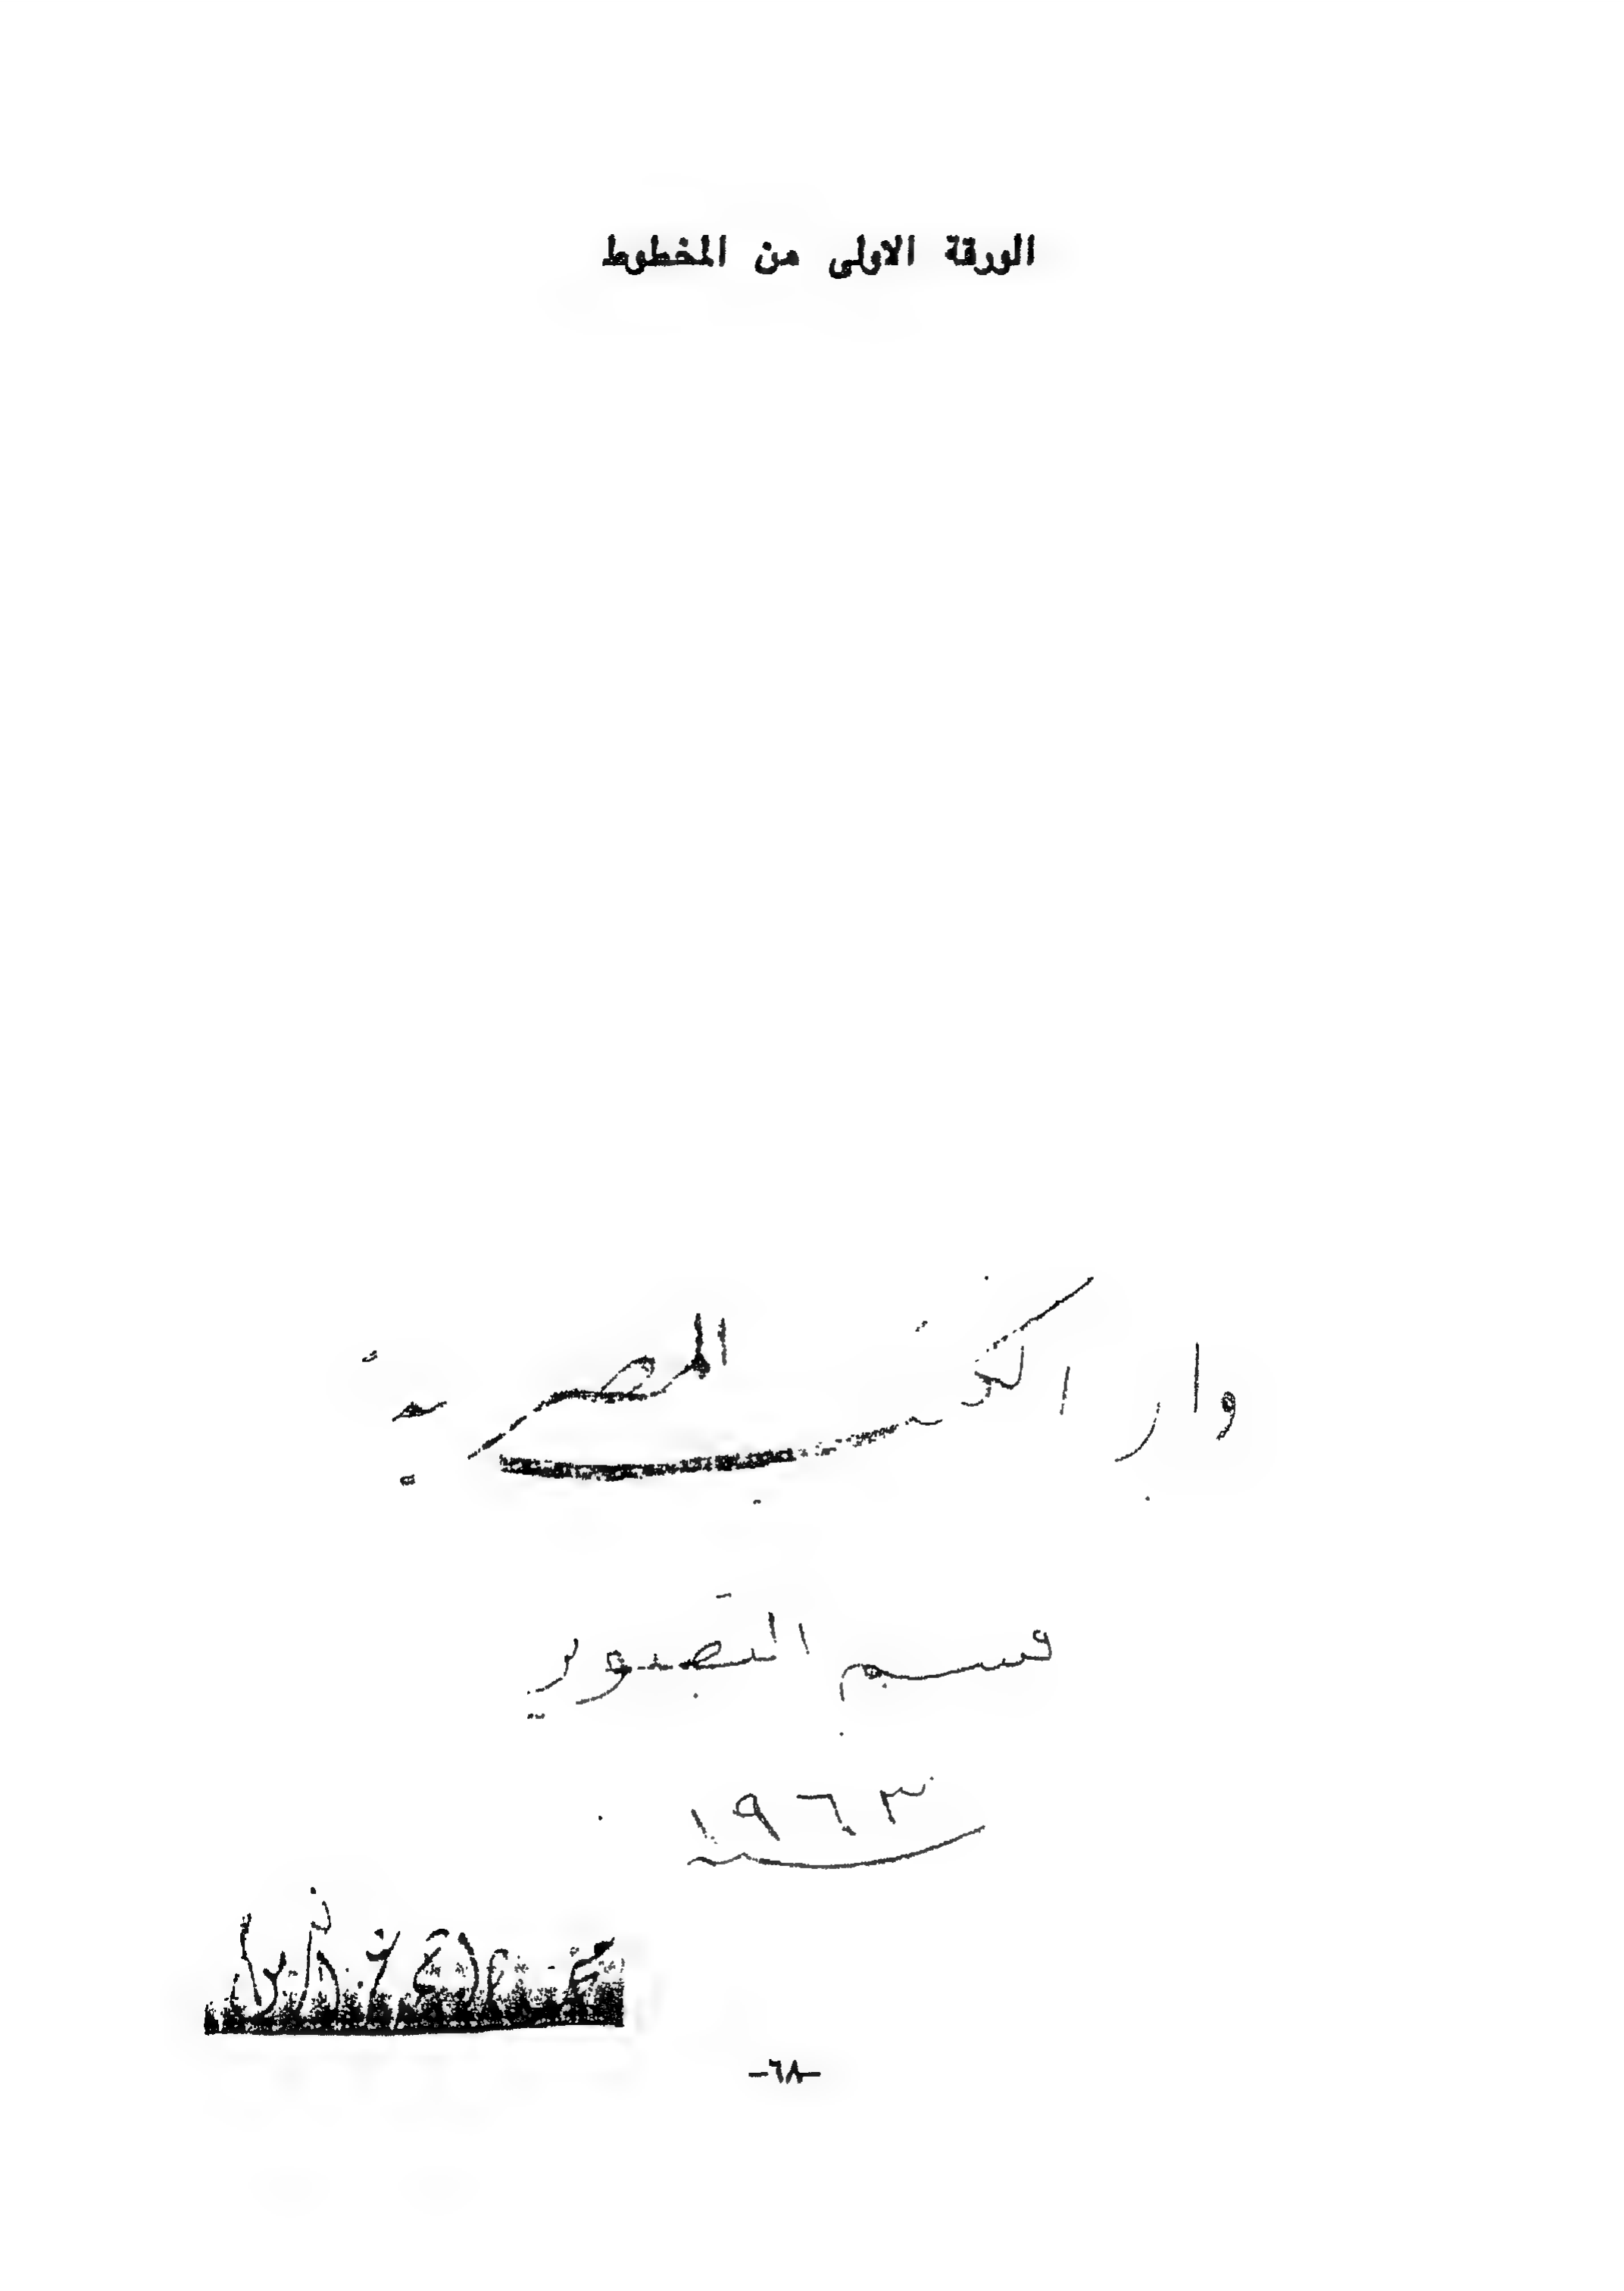 الورقة الاولى من المخطوط
دار الكتب المصرية
قسم التصوير
١٩٦٣
-٦٨-